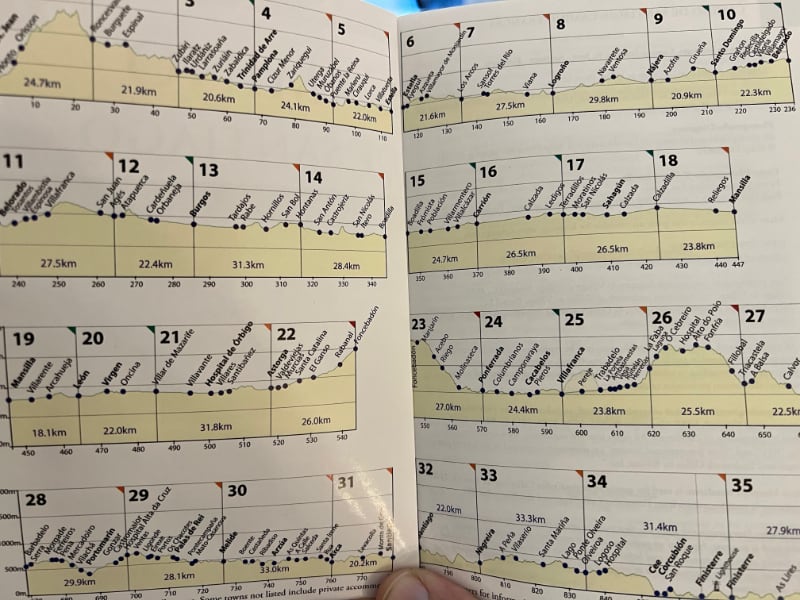 3
4
5
Orisson
Roncesvalles
Burguete
Espinal
Zubiri
Ilarratz
Larrasoaña
Zuriáin
Zabaldika
Trinidad de Arre
Pamplona
Cizur Menor
Zariquiegui
Uterga
Muruzábal
Obanos
Puente la Reina
Mañeru
Cirauqui
Lorca
Villatuerta
Estella
24.7km
21.9km
20.6km
24.1km
22.0km
10 20 30 40 50 60 70 80 90 100 110
6
7
8
9
10
Estella
Ayegui
Azqueta
Villamayor de Monjardín
Los Arcos
Sansol
Torres del Río
Viana
Logroño
Navarrete
Ventosa
Nájera
Azofra
Cirueña
Santo Domingo
Grañón
Belorado
21.6km
27.5km
29.8km
20.9km
22.3km
120 130 140 150 160 170 180 190 200 210 220 230 236
11
12
13
14
Belorado
Tosantos
Espinosa
Villafranca
San Juan
Agés
Atapuerca
Cardeñuela
Orbaneja
Burgos
Tardajos
Rabé
Hornillos
San Bol
Hontanas
San Antón
Castrojeriz
San Nicolás
Itero
Boadilla
27.5km
22.4km
31.3km
28.4km
240 260 270 280 290 300 310 320 330 340
15
16
17
18
Boadilla
Frómista
Población
Villarmentero
Villalcázar
Carrión
Calzada
Ledigos
Terradillos
Moratinos
San Nicolás
Sahagún
Calzada
Calzadilla
Reliegos
Mansilla
24.7km
26.5km
26.5km
23.8km
350 360 370 380 390 400 410 420 430 440 447
19
20
21
22
Mansilla
Villarente
Arcahueja
León
Virgen
Oncina
Villar de Mazarife
Villavante
Hospital de Órbigo
Villares
Santibáñez
Astorga
Valdeviejas
Murias
Santa Catalina
El Ganso
Rabanal
Foncebadón
18.1km
22.0km
31.8km
26.0km
450 460 470 480 490 500 510 520 530 540
23
24
25
26
27
Foncebadón
Manjarín
Acebo
Riego
Molinaseca
Ponferrada
Columbrianos
Camponaraya
Cacabelos
Pieros
Villafranca
Pereje
Trabadelo
La Faba
Laguna
O Cebreiro
Hospital
Alto do Poio
Fonfría
Filloval
Triacastela
A Balsa
Calvor
27.0km
24.4km
23.8km
25.5km
22.5k
550 560 570 580 590 600 610 620 630 640 650
28
29
30
31
Barbadelo
Mercadoiro
Vilachá
Portomarín
Gonzar
Castromaior
Hospital Alta da Cruz
Palas de Rei
Melide
Boente
Castañeda
Ribadiso
Arzúa
Salceda
Lavacolla
29.9km
28.1km
33.0km
20.2km
670 680 690 700 710 720 730 740 750 760 770
32
33
34
35
Santiago
Negreira
A Peña
Vilaserío
Santa Mariña
Lago
Ponte Olveira
Olveiroa
Logoso
Hospital
Cee
Corcubión
San Roque
Finisterre
Lighthouse
Finisterre
As Lires
22.0km
33.3km
31.4km
27.9km
790 800 810 820 830 840
Some towns not listed include private accomm